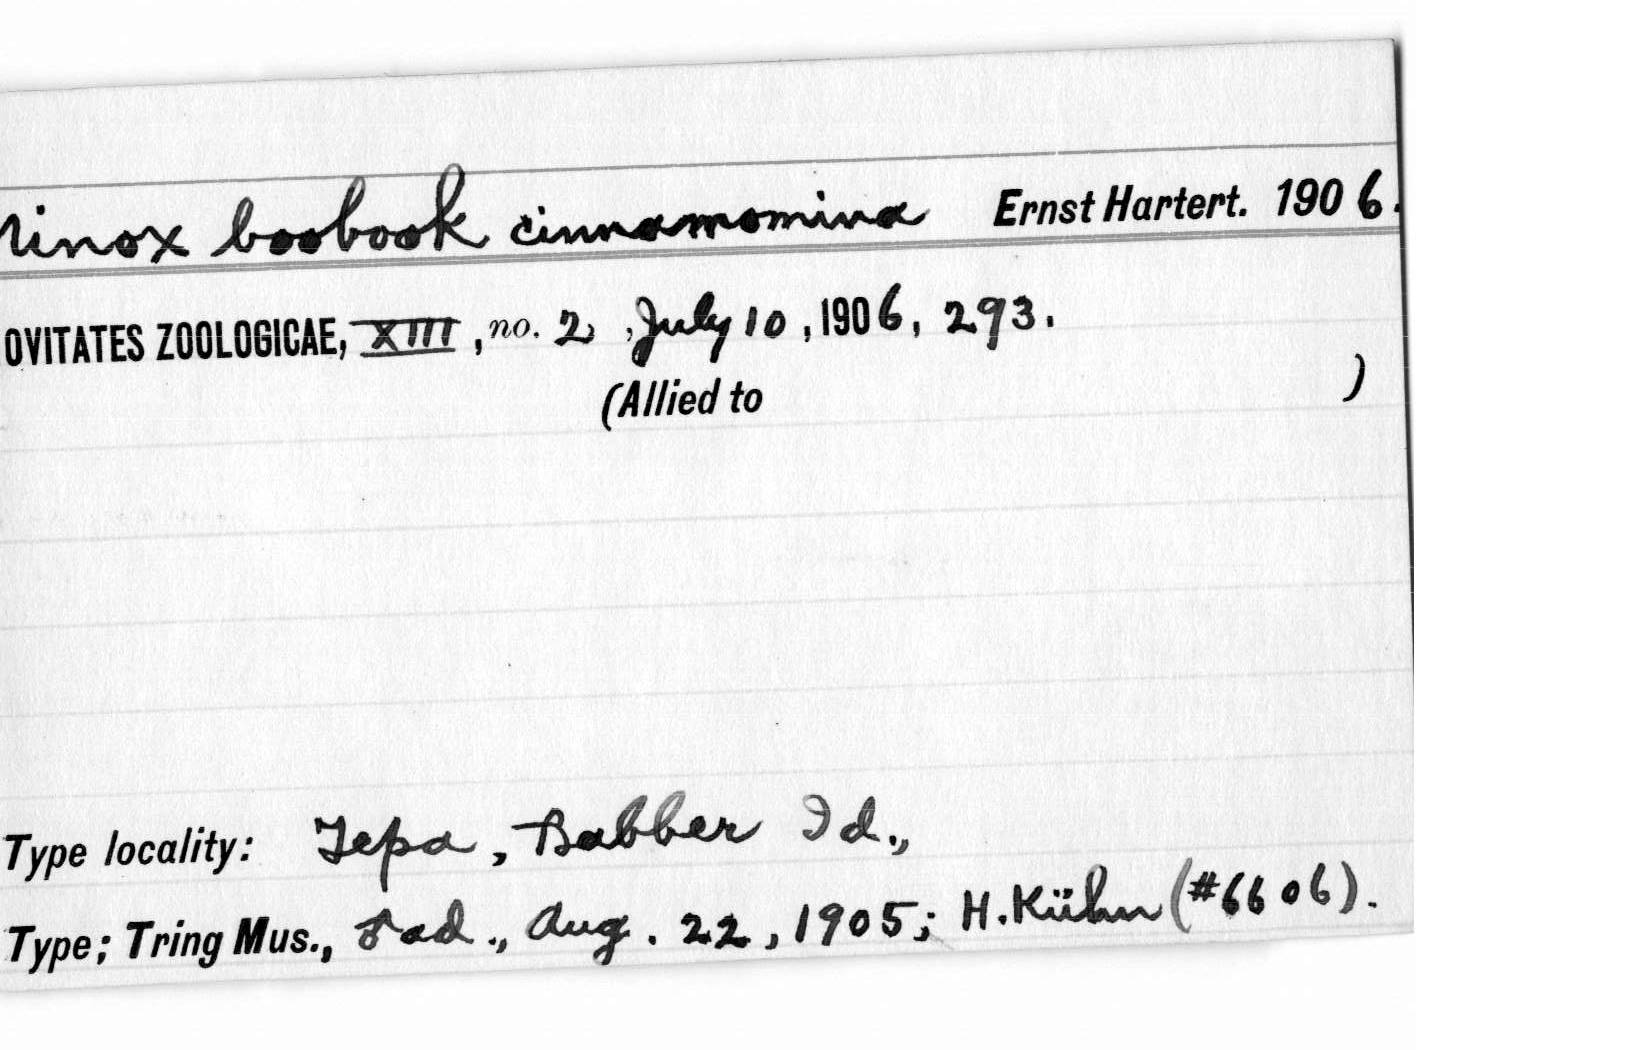 Ninox boobook cinnamomina Ernst Hartert. 1906.
OVITATES ZOOLOGICAE, XIII, no. 2, July 10, 1906, 293.
(Allied to )
Type locality: Tepa, Babber Id.,
Type; Tring Mus., ♂ ad., Aug. 22, 1905; H. Kühn (#6606).